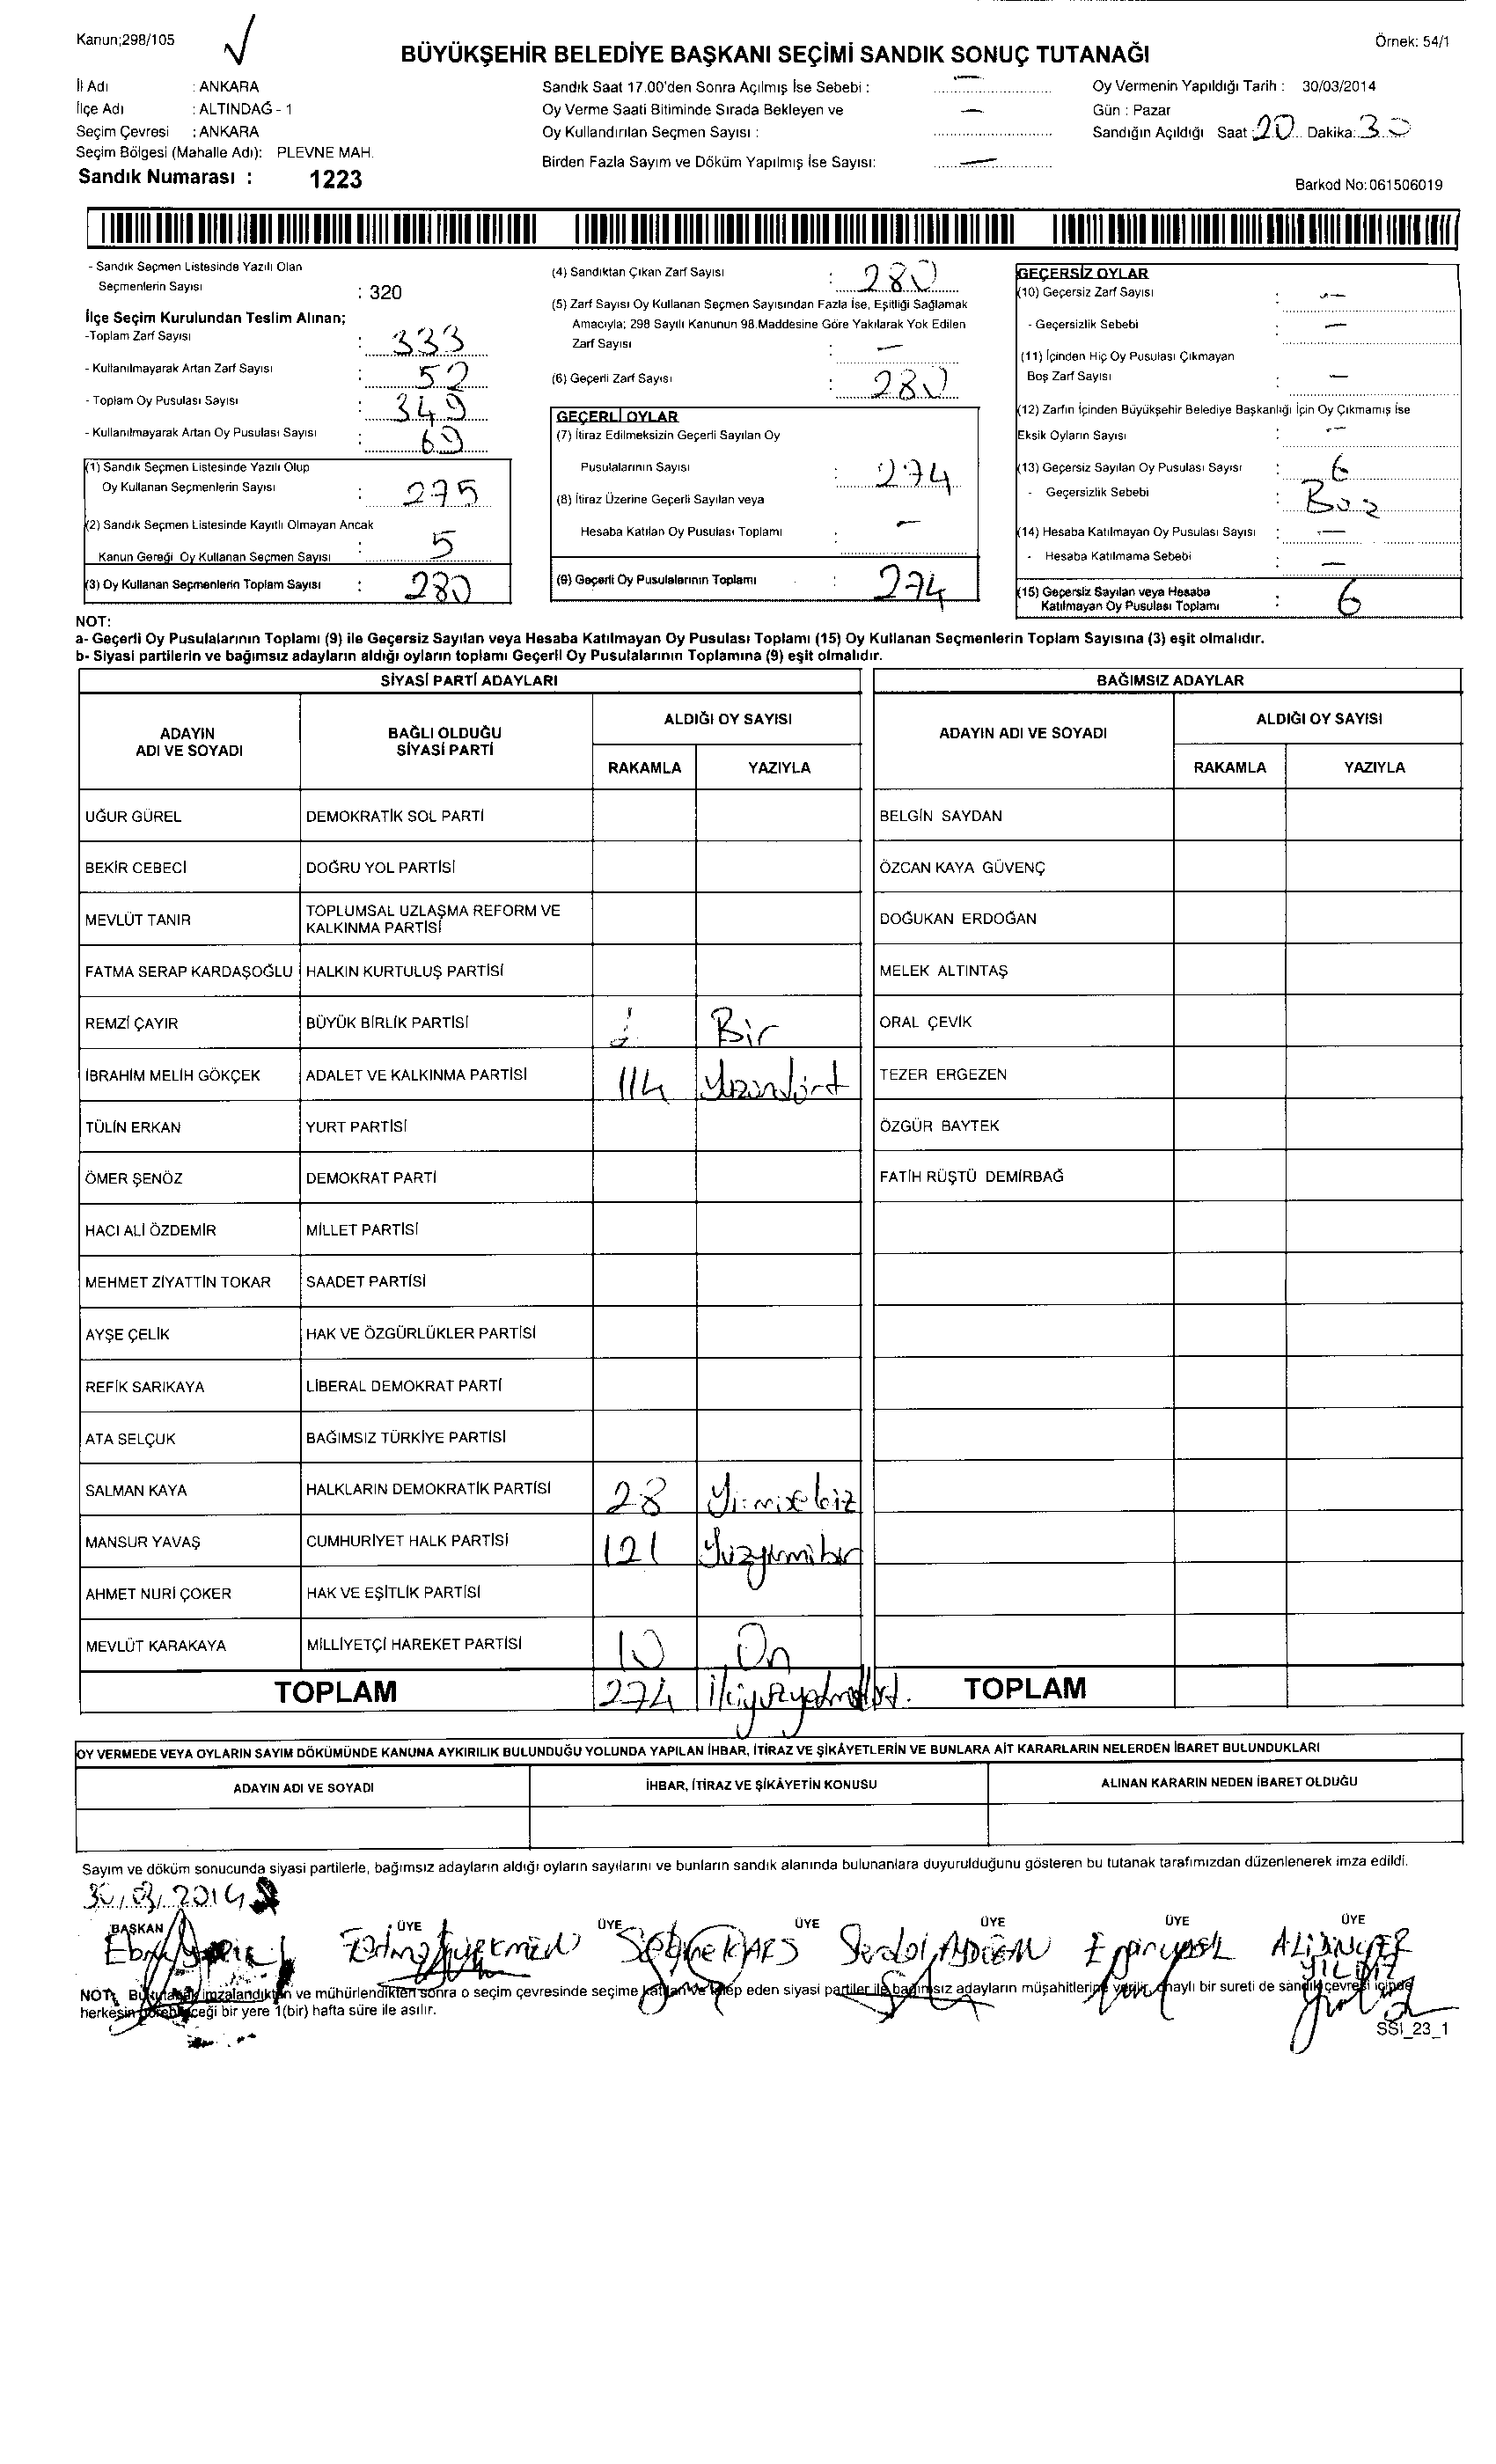 Kanun;298/105
Örnek: 54/1
BÜYÜKŞEHİR BELEDİYE BAŞKANI SEÇİMİ SANDIK SONUÇ TUTANAĞI
İl Adı : ANKARA
İlçe Adı : ALTINDAĞ - 1
Seçim Çevresi : ANKARA
Seçim Bölgesi (Mahalle Adı): PLEVNE MAH.
Sandık Numarası : 1223
Sandık Saat 17.00'den Sonra Açılmış İse Sebebi : —
Oy Verme Saati Bitiminde Sırada Bekleyen ve
Oy Kullandırılan Seçmen Sayısı : —
Birden Fazla Sayım ve Döküm Yapılmış İse Sayısı: —
Oy Vermenin Yapıldığı Tarih : 30/03/2014
Gün : Pazar
Sandığın Açıldığı Saat : 20 Dakika: 30
Barkod No:061506019
- Sandık Seçmen Listesinde Yazılı Olan
Seçmenlerin Sayısı : 320
İlçe Seçim Kurulundan Teslim Alınan;
-Toplam Zarf Sayısı : 333
- Kullanılmayarak Artan Zarf Sayısı : 52
- Toplam Oy Pusulası Sayısı : 349
- Kullanılmayarak Artan Oy Pusulası Sayısı : 69
(1) Sandık Seçmen Listesinde Yazılı Olup
Oy Kullanan Seçmenlerin Sayısı : 275
(2) Sandık Seçmen Listesinde Kayıtlı Olmayan Ancak
Kanun Gereği Oy Kullanan Seçmen Sayısı : 5
(3) Oy Kullanan Seçmenlerin Toplam Sayısı : 280
(4) Sandıktan Çıkan Zarf Sayısı : 280
(5) Zarf Sayısı Oy Kullanan Seçmen Sayısından Fazla İse, Eşitliği Sağlamak
Amacıyla; 298 Sayılı Kanunun 98.Maddesine Göre Yakılarak Yok Edilen
Zarf Sayısı : —
(6) Geçerli Zarf Sayısı : 280
GEÇERLİ OYLAR
(7) İtiraz Edilmeksizin Geçerli Sayılan Oy
Pusulalarının Sayısı : 274
(8) İtiraz Üzerine Geçerli Sayılan veya
Hesaba Katılan Oy Pusulası Toplamı : —
(9) Geçerli Oy Pusulalarının Toplamı : 274
GEÇERSİZ OYLAR
(10) Geçersiz Zarf Sayısı : —
- Geçersizlik Sebebi : —
(11) İçinden Hiç Oy Pusulası Çıkmayan
Boş Zarf Sayısı : —
(12) Zarfın İçinden Büyükşehir Belediye Başkanlığı İçin Oy Çıkmamış İse
Eksik Oyların Sayısı : —
(13) Geçersiz Sayılan Oy Pusulası Sayısı : 6
- Geçersizlik Sebebi :
(14) Hesaba Katılmayan Oy Pusulası Sayısı : —
- Hesaba Katılmama Sebebi : —
(15) Geçersiz Sayılan veya Hesaba
Katılmayan Oy Pusulası Toplamı : 6
NOT:
a- Geçerli Oy Pusulalarının Toplamı (9) ile Geçersiz Sayılan veya Hesaba Katılmayan Oy Pusulası Toplamı (15) Oy Kullanan Seçmenlerin Toplam Sayısına (3) eşit olmalıdır.
b- Siyasi partilerin ve bağımsız adayların aldığı oyların toplamı Geçerli Oy Pusulalarının Toplamına (9) eşit olmalıdır.
SİYASİ PARTİ ADAYLARI
ADAYIN ADI VE SOYADI
BAĞLI OLDUĞU SİYASİ PARTİ
ALDIĞI OY SAYISI
RAKAMLA YAZIYLA
UĞUR GÜREL DEMOKRATİK SOL PARTİ
BEKİR CEBECİ DOĞRU YOL PARTİSİ
MEVLÜT TANIR TOPLUMSAL UZLAŞMA REFORM VE KALKINMA PARTİSİ
FATMA SERAP KARDAŞOĞLU HALKIN KURTULUŞ PARTİSİ
REMZİ ÇAYIR BÜYÜK BİRLİK PARTİSİ 1 Bir
İBRAHİM MELİH GÖKÇEK ADALET VE KALKINMA PARTİSİ 114 Yüzondört
TÜLİN ERKAN YURT PARTİSİ
ÖMER ŞENÖZ DEMOKRAT PARTİ
HACI ALİ ÖZDEMİR MİLLET PARTİSİ
MEHMET ZİYATTİN TOKAR SAADET PARTİSİ
AYŞE ÇELİK HAK VE ÖZGÜRLÜKLER PARTİSİ
REFİK SARIKAYA LİBERAL DEMOKRAT PARTİ
ATA SELÇUK BAĞIMSIZ TÜRKİYE PARTİSİ
SALMAN KAYA HALKLARIN DEMOKRATİK PARTİSİ 28 Yirmisekiz
MANSUR YAVAŞ CUMHURİYET HALK PARTİSİ 121 Yüzyirmibir
AHMET NURİ ÇOKER HAK VE EŞİTLİK PARTİSİ
MEVLÜT KARAKAYA MİLLİYETÇİ HAREKET PARTİSİ 10 On
TOPLAM 274 İkiyüzyetmişdört.
BAĞIMSIZ ADAYLAR
ADAYIN ADI VE SOYADI
ALDIĞI OY SAYISI
RAKAMLA YAZIYLA
BELGİN SAYDAN
ÖZCAN KAYA GÜVENÇ
DOĞUKAN ERDOĞAN
MELEK ALTINTAŞ
ORAL ÇEVİK
TEZER ERGEZEN
ÖZGÜR BAYTEK
FATİH RÜŞTÜ DEMİRBAĞ
TOPLAM
OY VERMEDE VEYA OYLARIN SAYIM DÖKÜMÜNDE KANUNA AYKIRILIK BULUNDUĞU YOLUNDA YAPILAN İHBAR, İTİRAZ VE ŞİKÂYETLERİN VE BUNLARA AİT KARARLARIN NELERDEN İBARET BULUNDUKLARI
ADAYIN ADI VE SOYADI İHBAR, İTİRAZ VE ŞİKÂYETİN KONUSU ALINAN KARARIN NEDEN İBARET OLDUĞU
Sayım ve döküm sonucunda siyasi partilerle, bağımsız adayların aldığı oyların sayılarını ve bunların sandık alanında bulunanlara duyurulduğunu gösteren bu tutanak tarafımızdan düzenlenerek imza edildi.
30/03/2014
BAŞKAN ÜYE ÜYE ÜYE ÜYE ÜYE ÜYE
NOT: Bu tutanak imzalandıktan ve mühürlendikten sonra o seçim çevresinde seçime katılan ve talep eden siyasi partiler ile bağımsız adayların müşahitlerine verilir, onaylı bir sureti de sandık çevresi içinde
herkesin görebileceği bir yere 1(bir) hafta süre ile asılır.
SSI_23_1